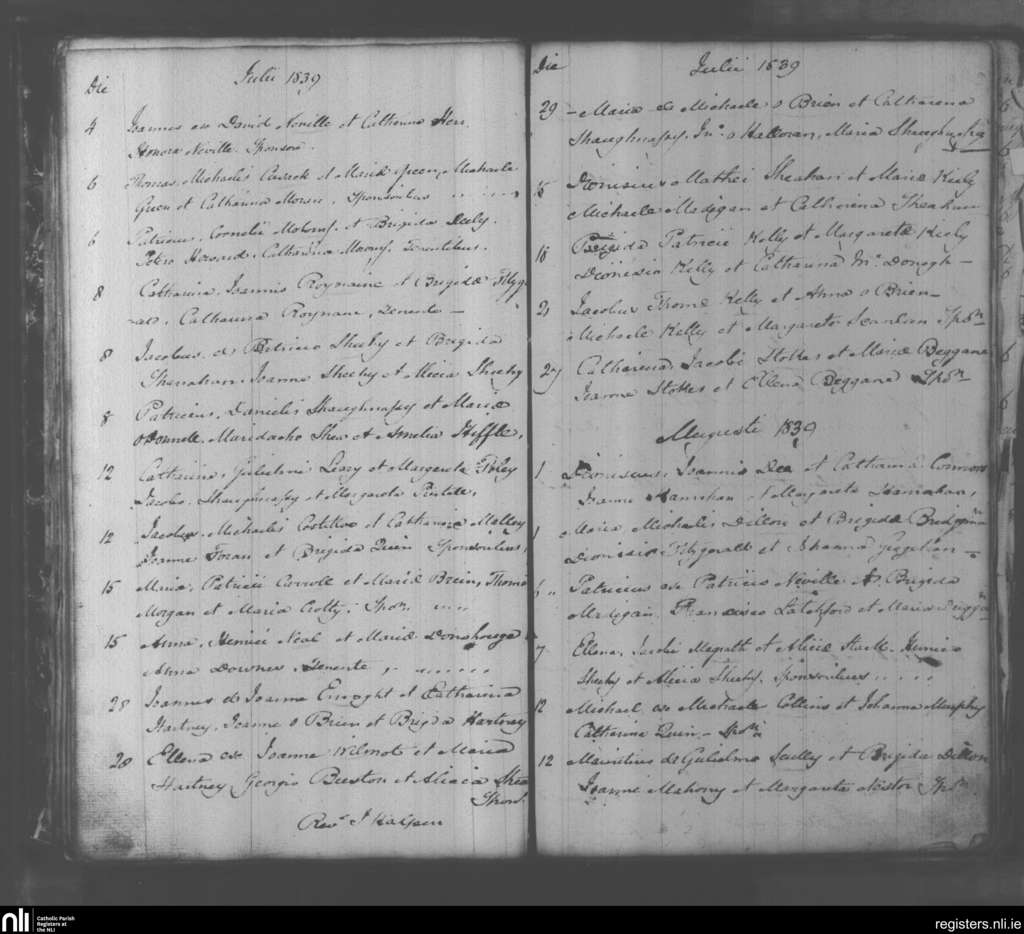 Die Julii 1839
4 Joannes ex David Neville et Catherina Herr
Honora Neville Sponsore.
6 Thomas, Michaelis Cusack et Mariæ Green, Michaele
Green et Catharina Morris, Sponsoribus
6 Patricius, Cornelii et Brigida Daly.
Petro Howard, Catharina Tenentibus.
8 Catharina, Joannis Roynane et Brigidæ Fitzge
rald, Catharina Roynane, Tenente —
8 Jacobus, de Patricio Sheehy et Brigida
Shanahan, Joanne Sheehy et Alicia Sheehy
8 Patricius, Danielis Shaughnassy et Mariæ
O'Donnell, Shea et Amelia
12 Catharina, Gulielmi Leary et Margareta Foley
Jacobo Shaughnassy et Margareta
12 Jacobus, Michaelis et Catharinæ Molloy
Joanne Foran et Brigida Quin Sponsoribus,
15 Maria, Patricii Carroll et Mariæ Breen, Thoma
Morgan et Maria Crotty, Spon
15 Anna, Henrici Neal et Mariæ Donohouge
Anna Downes, Tenente,
28 Joannes de Joanne Enright et Catharina
Hartney, Joanne O Brien et Brigida Hartney
28 Ellena ex Joanne Wilmot et Maria
Hartney Georgio Beeston et Alicia Shea
Spons.
Revd J Halpin
Die Julii 1839
29 — Maria de Michaele O Brien et Catharena
Shaughnassy, Jno O Halloran, Maria Shaughnassy
15 Dionisius Mathei Sheahan et Mariæ Kiely
Michaele Madigan et Catherina Sheahan
18 Brigida Patricii Kelly et Margaretæ Kiely
Dionisio Kelly et Catharina Mc Donogh —
21 Jacobus Thomæ Kelly et Anna O Brien —
Michaele Kelly et Margareta Scanlan Spon
27 Catharina Jacobi Stokes et Mariæ Beggane
Joanne Stokes et Ellena Beggane Spon
Augusti 1839
1 Dionisius, Joannis Dea et Catharina Connors
Joanne Hannahan et Margareta Hannahan,
1 Maria Michaelis Dillon et Brigidæ
Dionisio Fitzgerald et Johanna Geoghan —
6 Patricius ex Patricio Neville et Brigida
Madigan Francisco Latchford et Maria
7 Ellena, Jacobi Magrath et Aliciæ Stack. Henrico
Sheehy et Alicia Sheehy, Sponsoribus
12 Michael ex Michaele Collins et Johanna Murphy
Catharina Quin — Spon
12 Mauritius de Gulielmo Scully et Brigida Dillon
Joanne Mahony et Margareta Nestor Spon
nli
Catholic Parish
Registers at
the NLI
registers.nli.ie